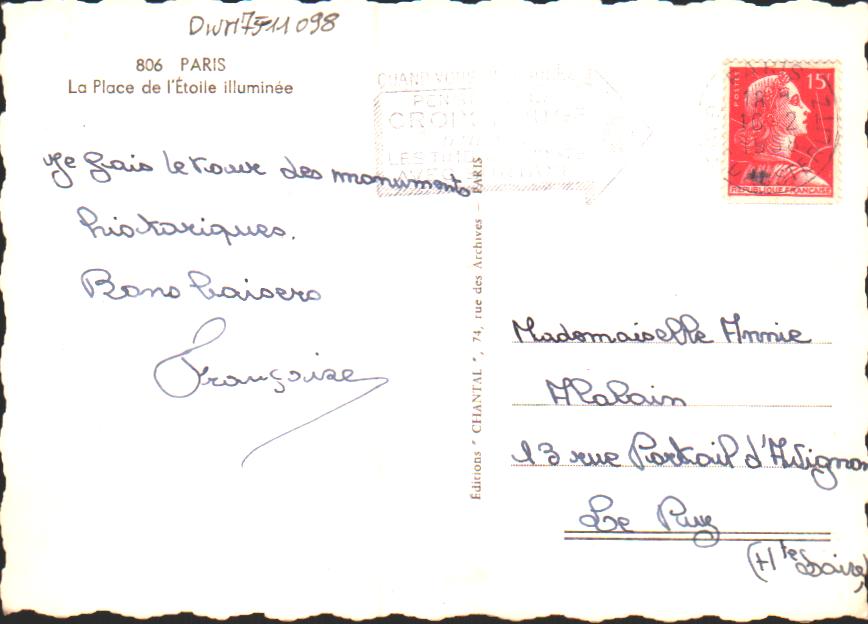 DWM7511098
806 PARIS
La Place de l'Étoile illuminée
Je fais le tour des monuments
historiques.
Bons baisers
Françoise
Éditions "CHANTAL", 74, rue des Archives - PARIS
QUAND VOUS
CROIX
AVEC
PARIS
POSTES
15F
REPUBLIQUE FRANÇAISE
Mademoiselle Annie
13 rue Portail d'Avignon
Le Puy
(Hte Loire)